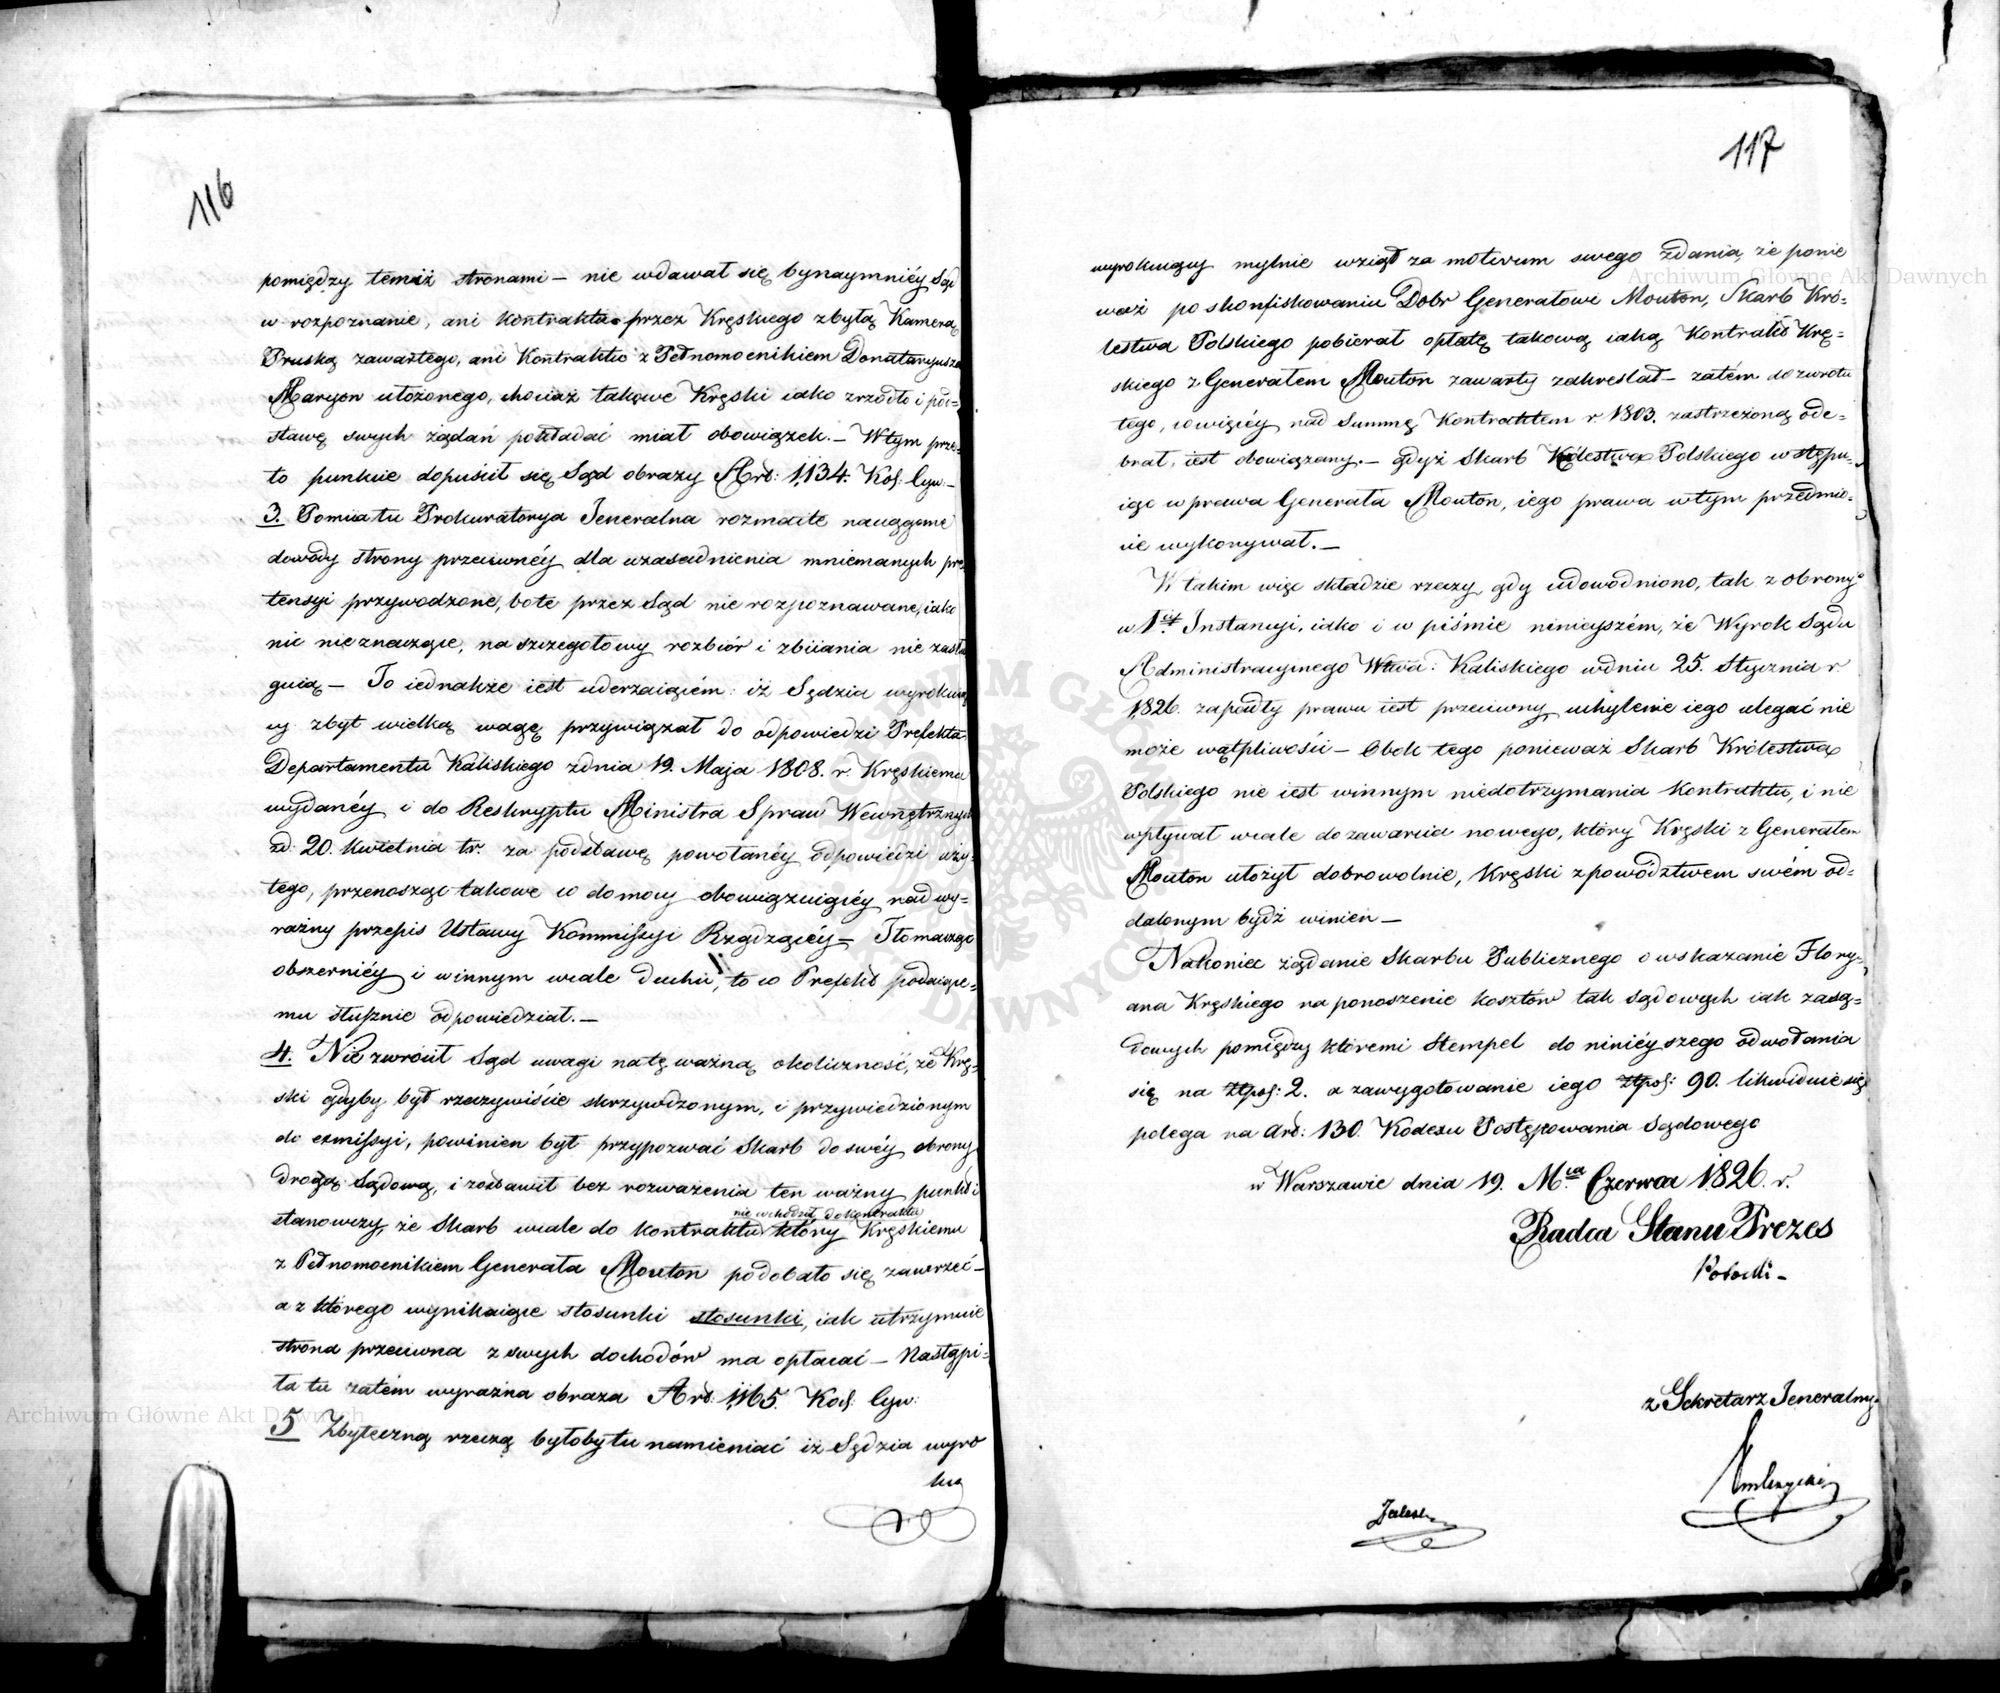 116
pomiędzy temiż stronami – nie wdawał się bynaymniéy Sąd
w rozpoznanie, ani kontraktu przez Kręskiego z byłą Kamerą
Pruską zawartego, ani Kontraktu z Pełnomocnikiem Donataryusza
Maryon ułożonego, chociaż takowe Kręski iako zrzódło i pod=
stawę swych żądań pokładać miał obowiązek. – W tym prze=
to punkcie dopuścił się Sąd obrazy Art: 1,134. Kod: Cyw: –
3. Pomiata tu Prokuratorya Jeneralna rozmaite naciągane
dowody strony przeciwnéy dla uzasadnienia mniemanych pre
tensyi przywodzone, bo te przez Sąd nie rozpoznawane, iako
nic nie znaczące, na szczegółowy rozbiór i zbiiania nie zasłu
guią – To iednakże iest uderzaiącém: iż Sędzia wyrokuią
cy zbyt wielką wagę przywiązał do odpowiedzi Prefekta
Departamentu Kaliskiego z dnia 19. Maja 1808. r. Kręskiemu
wydanéy i do Reskryptu Ministra Spraw Wewnętrznych
z d. 20. kwietnia t.r. za podstawę powołanéy odpowiedzi uży=
tego, przenosząc takowe co do mocy obowiązuiącéy nad wy=
raźny przepis Ustawy Kommissyi Rządzącéy – Tłomacząc
obszerniéy i w innym wcale duchu, to co Prefekt podaiące=
mu słusznie odpowiedział. –
4. Nie zwrócił Sąd uwagi na tę ważną okoliczność, że Krę=
ski gdyby był rzeczywiście skrzywdzonym, i przywiedzionym
do exmissyi, powinien był przypozwać Skarb do swéy obrony
drogą Sądową, i zostawił bez rozważenia ten ważny punkt i
stanowczy, że Skarb wcale do kontraktu który Kręskiemu
nie wchodził do kontraktu
z Pełnomocnikiem Generała Mouton podobało się zawrzeć –
a z którego wynikaiące stosunki stosunki, iak utrzymuie
strona przeciwna z swych dochodów ma opłacać – Nastąpi=
ła tu zatém wyraźna obraza Art. 1,165. Kod: Cyw:
5 Zbyteczną rzeczą byłoby tu namieniać iż Sędzia wyro
kuą
117
wyrokuiący mylnie wziął za motivum swego zdania, że ponie
waż po skonfiskowaniu Dobr Generałowi Mouton, Skarb Kró=
lestwa Polskiego pobierał opłatę takową iaką Kontrakt Krę=
skiego z Generałem Mouton zawarty zakreślał – zatém do zwrotu
tego, co więcéy nad Summę Kontraktem r. 1803. zastrzeżoną ode=
brał, iest obowiązany. – gdyż Skarb Królestwa Polskiego wstępu=
iąc w prawa Generała Mouton, iego prawa w tym przedmio=
cie wykonywał. –
W takim więc składzie rzeczy, gdy udowodniono, tak z obrony
w 1éj Instancyi, iako i w piśmie niniejszém, że Wyrok Sądu
Administracyinego Wtwa: Kaliskiego w dniu 25. Stycznia r
1,826. zapadły prawu iest przeciwny, uchylenie iego ulegać nie
może wątpliwości – Obok tego ponieważ Skarb Królestwa
Polskiego nie iest winnym niedotrzymania kontraktu, i nie
wpływał wcale do zawarcia nowego, który Kręski z Generałem
Mouton ułożył dobrowolnie, Kręski z powództwem swém od=
dalonym bydź winien –
Nakoniec żądanie Skarbu Publicznego o wskazanie Flory=
ana Kręskiego na ponoszenie kosztów tak sądowych iak zasą=
dowych pomiędzy któremi Stempel do niniéyszego odwołania
się na złpol: 2. a za wygotowanie iego złpol: 90. likwiduie się
polega na Art: 130. Kodexu Postępowania Sądowego
w Warszawie dnia 19. Mca Czerwca 1,826. r.
Radca Stanu Prezes
Potocki –
z Sekretarz Jeneralny
Archiwum Główne Akt Dawnych
Archiwum Główne Akt Dawnych